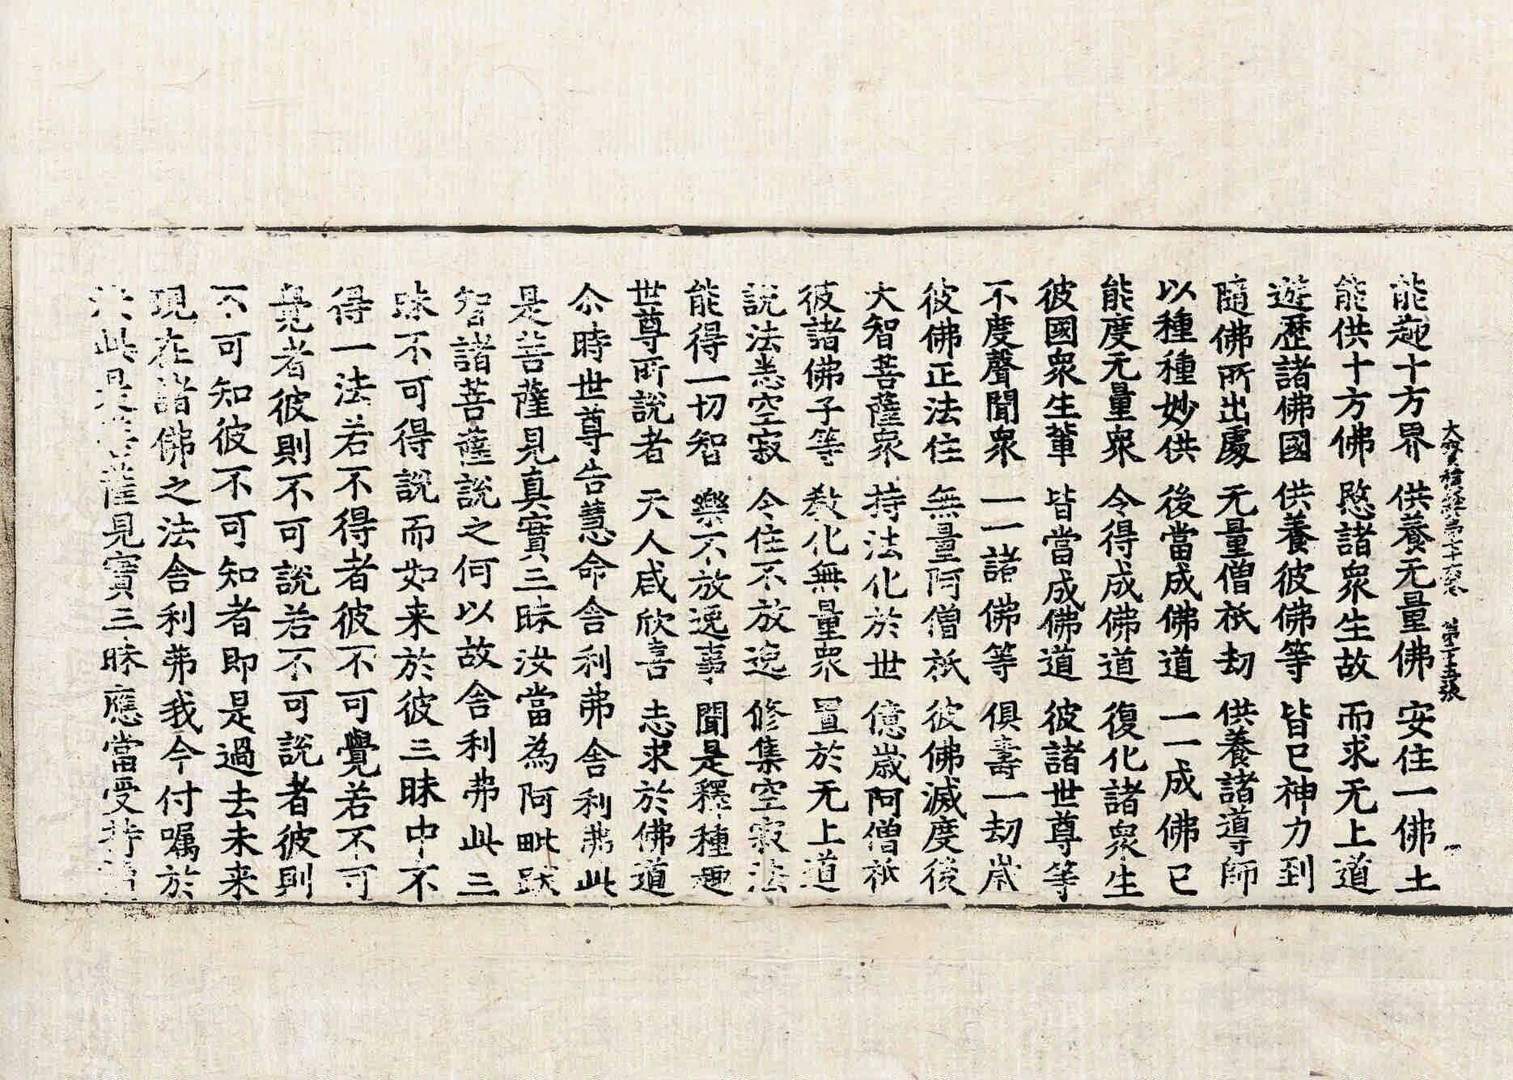 大寶積經第七十六卷 第十五張
能趣十方界 供養无量佛 安住一佛土
能供十方佛 愍諸衆生故 而求无上道
遊歷諸佛國 供養彼佛等 皆已神力到
隨佛所出處 无量僧祇劫 供養諸導師
以種種妙供 後當成佛道 一一成佛已
能度无量衆 令得成佛道 復化諸衆生
彼國衆生輩 皆當成佛道 彼諸世尊等
不度聲聞衆 一一諸佛等 俱壽一劫歲
彼佛正法住 無量阿僧祇 彼佛滅度後
大智菩薩衆 持法化於世 億歲阿僧祇
彼諸佛子等 教化無量衆 置於无上道
說法悉空寂 令住不放逸 修集空寂法
能得一切智 樂不放逸事 聞是釋種趣
世尊所說者 天人咸欣喜 志求於佛道
尒時世尊告慧命舍利弗舍利弗此
是菩薩見真實三昧汝當為阿毗跋
智諸菩薩說之何以故舍利弗此三
昧不可得說而如来於彼三昧中不
得一法若不得者彼不可覺若不可
覺者彼則不可說若不可說者彼則
不可知彼不可知者即是過去未来
現在諸佛之法舍利弗我今付嘱於
汝此是菩薩見實三昧應當受持